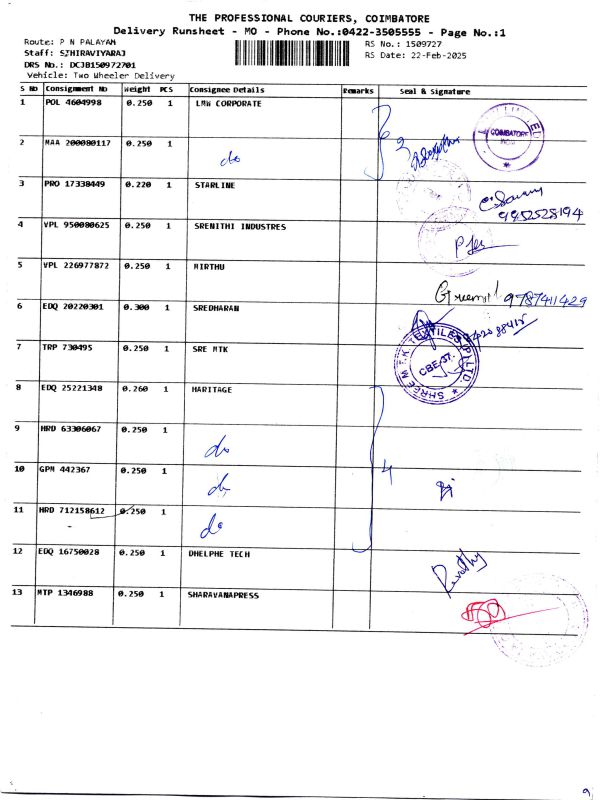 THE PROFESSIONAL COURIERS, COIMBATORE
Delivery Runsheet - MO - Phone No.:0422-3505555 - Page No.:1
Route: P N PALAYAM RS No.: 1509727
Staff: S.THIRAVIYARAJ RS Date: 22-Feb-2025
DRS No.: DCJB150972701
Vehicle: Two Wheeler Delivery
S No Consignment No Weight PCS Consignee Details Remarks Seal & Signature
1 POL 4604998 0.250 1 LMW CORPORATE
COIMBATORE
2 MAA 200080117 0.250 1 do 2
3 PRO 17338449 0.220 1 STARLINE
9952528194
4 VPL 950080625 0.250 1 SRENITHI INDUSTRES
5 VPL 226977872 0.250 1 MIRTHU
9787411429
6 EDQ 20220301 0.300 1 SREDHARAN
7 TRP 730495 0.250 1 SRE MTK
SHREE M.T.K. TEXTILES (P) LTD. CBE-37.
8 EDQ 25221348 0.260 1 HARITAGE
9 HRD 63306067 0.250 1 do
10 GPM 442367 0.250 1 do 4
11 HRD 712158612 0.250 1 do
12 EDQ 16750028 0.250 1 DHELPHE TECH
Revathy
13 MTP 1346988 0.250 1 SHARAVANAPRESS
9